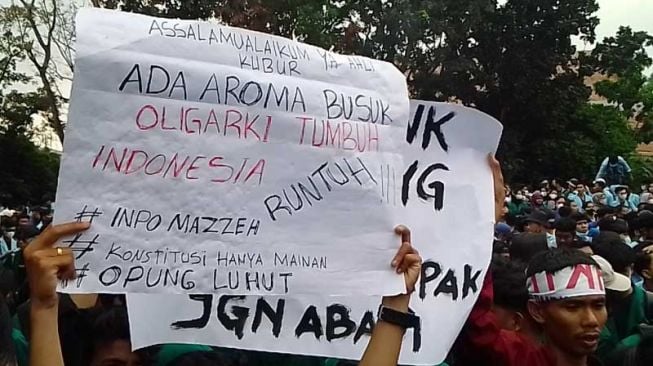 ASSALAMUALAIKUM YA AHLI
KUBUR
ADA AROMA BUSUK
OLIGARKI TUMBUH
INDONESIA
RUNTUH!!!
# INPO MAZZEH
# KONSTITUSI HANYA MAINAN
# OPUNG LUHUT
PAK
JGN